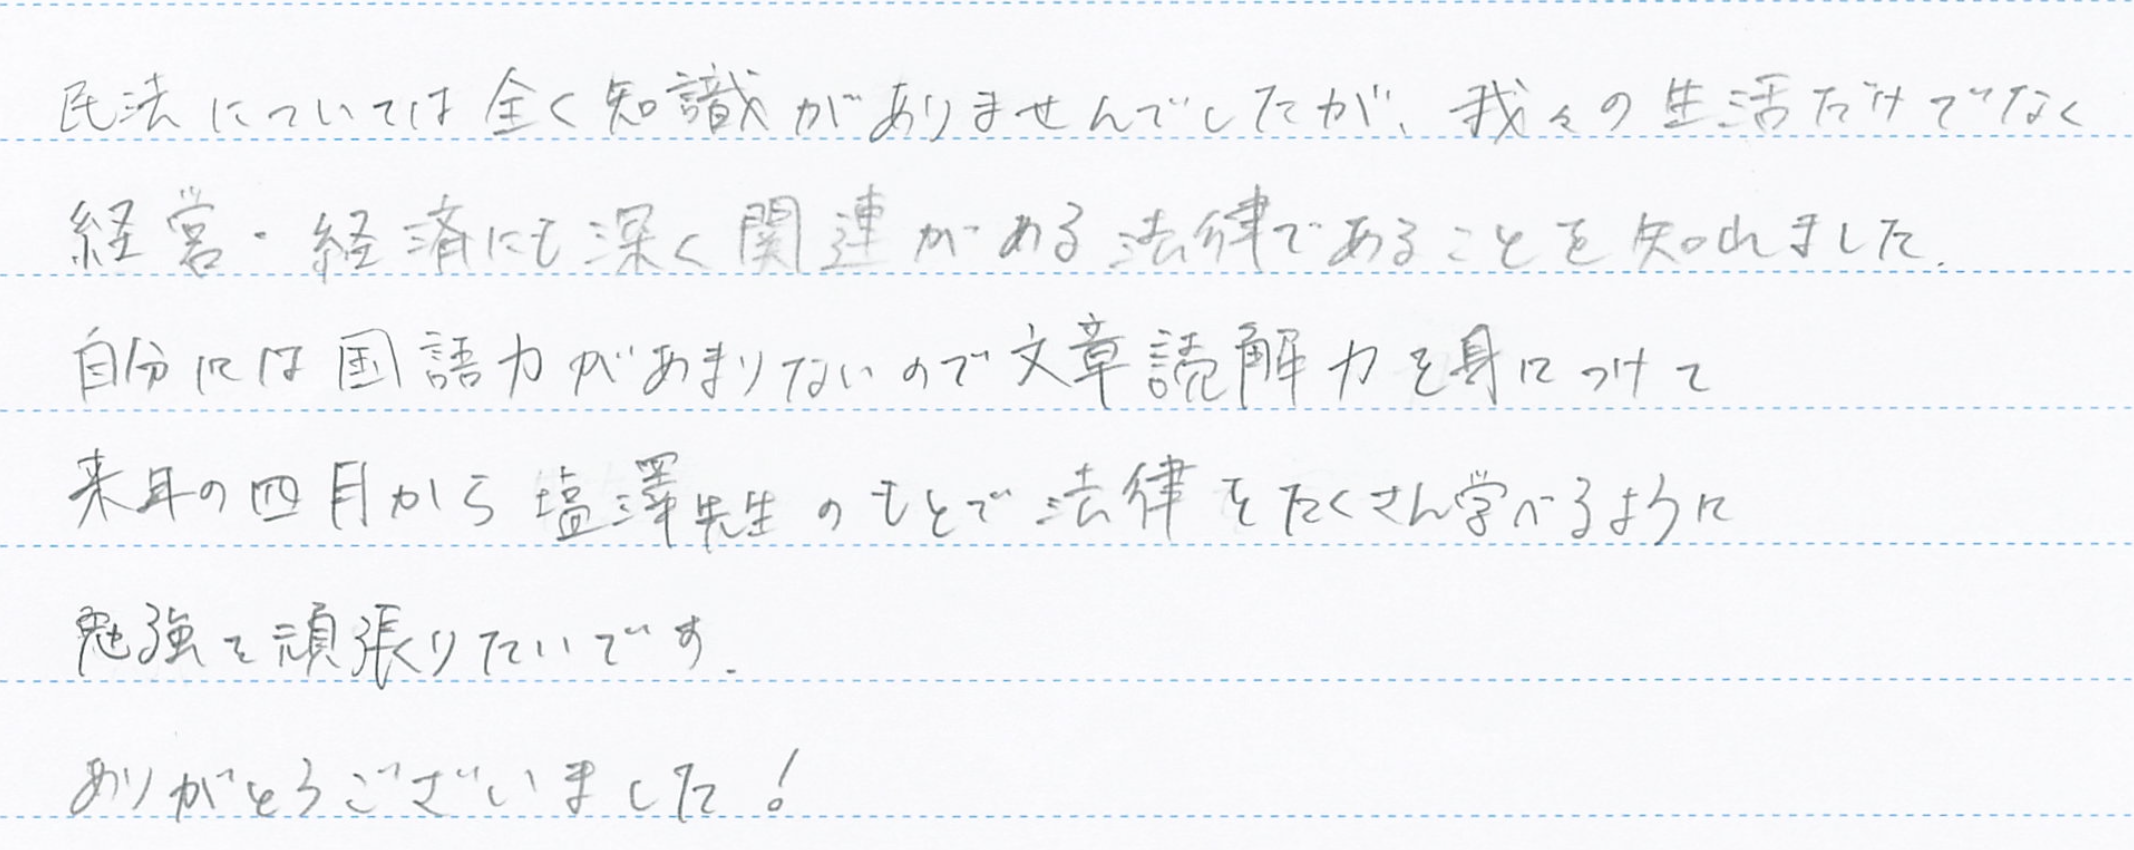 民法については全く知識がありませんでしたが、我々の生活だけでなく
経営・経済にも深く関連がある法律であることを知れました.
自分には国語力があまりないので文章読解力を身につけて
来年の四月から塩澤先生のもとで法律をたくさん学べるように
勉強を頑張りたいです.
ありがとうございました!